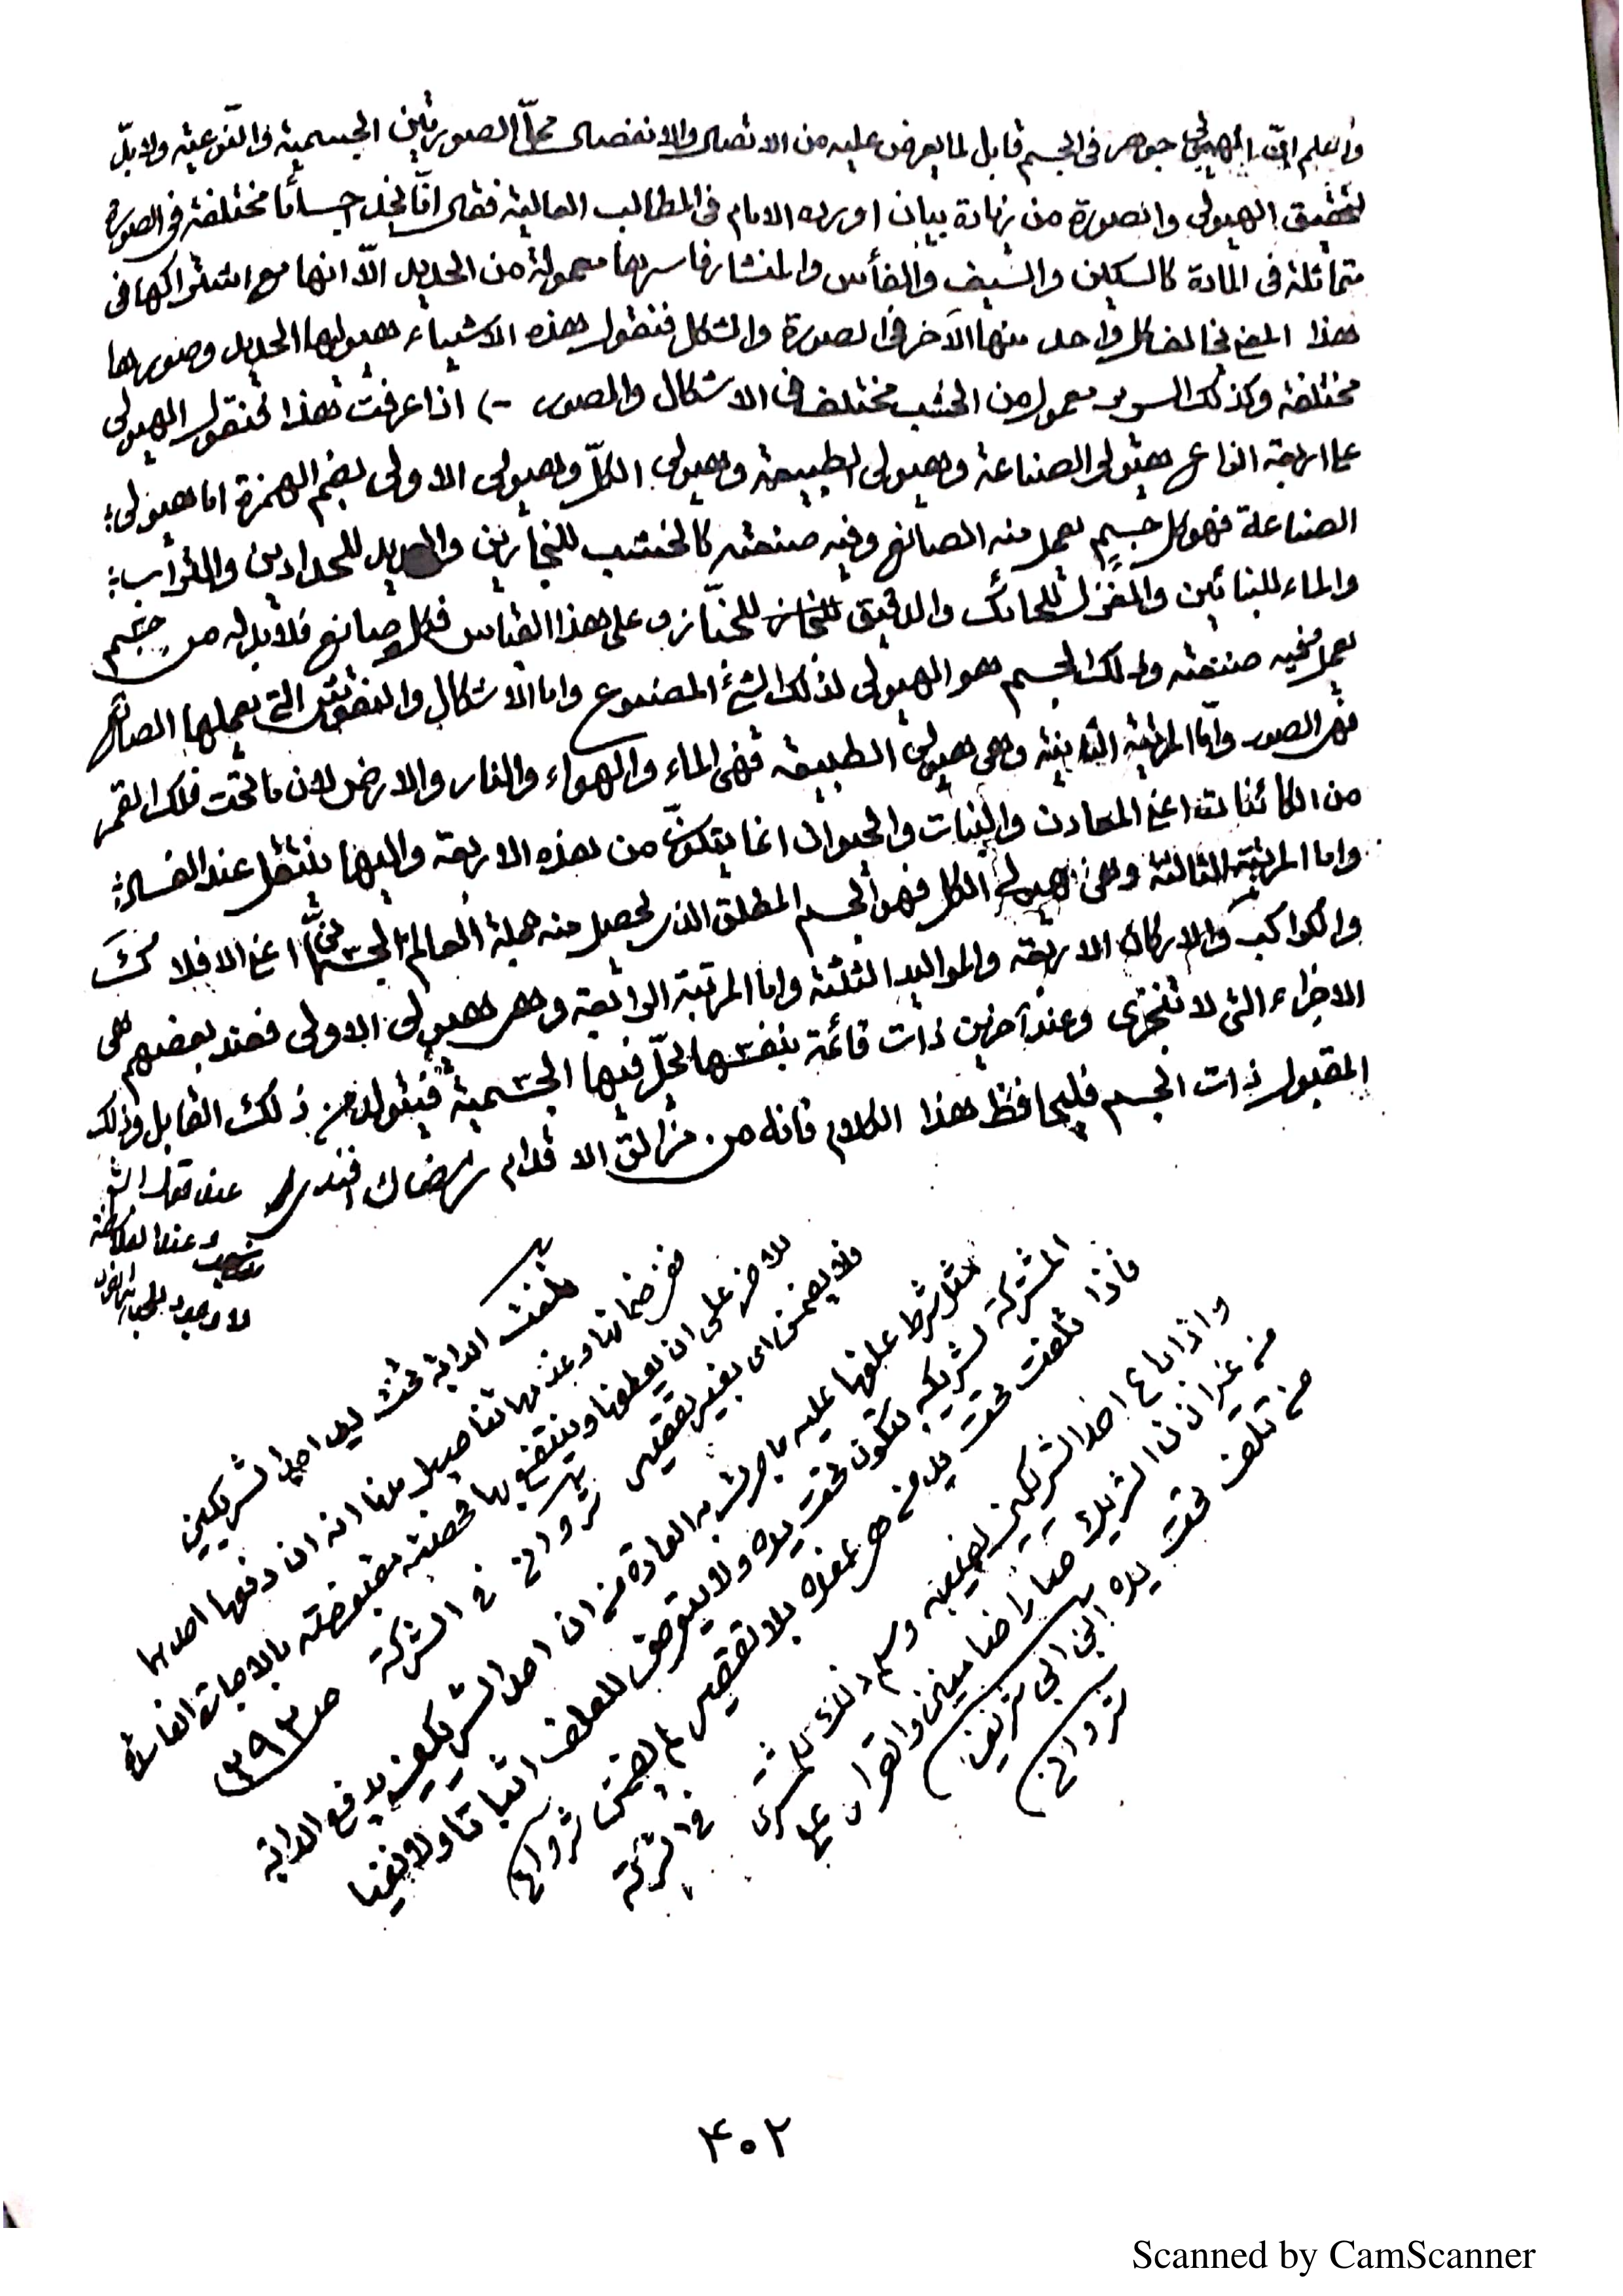 واعلم ان الهيولى جوهر فى الجسم قابل لما يعرض عليه من الاتصال والانفصال محل الصورتين الجسمية والنوعية ولابد
لتحقيق الهيولى والصورة من زيادة بيان اورده الامام فى المطالب العالية فقال انا نجد اجساما مختلفة فى الصورة
متماثلة فى المادة كالسكين والسيف والفأس والمنشار فاسرها معمولة من الحديد الا انها مع اشتراكها فى
هذا المعنى يخالف كل واحد منها الآخر فى الصورة والشكل فنقول هذه الاشياء هيوليها الحديد وصورها
مختلفة وكذلك السرير معمول من الخشب مختلف فى الاشكال والصور اذا عرفت هذا فنقول الهيولى
على اربعة انواع هيولى الصناعة وهيولى الطبيعة وهيولى الكلّ وهيولى الاولى بضم الهمزة اما هيولى
الصناعة فهو كل جسم يعمل منه الصانع وفيه صنعته كالخشب للنجارين والحديد للحدادين والتراب
والماء للبنائين والغزل للحائك والدقيق للخباز وعلى هذا القياس فكل صانع فلابد له من جسم
يعمل فيه صنعته وذلك الجسم هو الهيولى لذلك الشئ المصنوع واما الاشكال والنقوش التى يعملها الصانع
فهى الصور وامّا المرتبة الثانية وهى هيولى الطبيعة فهى الماء والهواء والنار والارض لان ما تحت فلك القمر
من الكائنات اعنى المعادن والنبات والحيوان انما يتكوّن من هذه الاربعة واليها ينتقل عند الفساد
واما المرتبة الثالثة وهى هيولى الكل فهو الجسم المطلق الذى يحصل منه جملة العالم الجسمانى اعنى الافلاك
والكواكب والاركان الاربعة والمواليد الثلثة واما المرتبة الرابعة وهى هيولى الاولى فعند بعضهم هى
الاجزاء التى لا تتجزى وعند آخرين ذات قائمة بنفسها تحلّ فيها الجسمية فيتولد من ذلك القابل وذلك
المقبول ذات الجسم فليحافظ هذا الكلام فانه من مزالق الاقدام رمضان افندى
عند قول الش
وعند الفلاسفة
تلفت الدابة تحت يد احد الشريكين
ففى ضمانها وعدمها تفاصيل منها انه ان دفعها احدهما
للآخر على ان يعلفها وينتفع بها فحصته مقبوضة بالاجارة الفاسدة
فلا يضمن اى بغير تقصير شروانى فى الشركة ص ٣٩٣
مثل شرط علفها عليه ما جرت به العادة من ان احد الشريكين يدفع الدابة
المشتركة لشريكه لتكون تحت يده ولا يتعرض للعلف اثباتا ولا نفيا
فاذا تلفت تحت يد من هى عنده بلا تقصير لم يضمن شروانى
واذا باع احد الشريكين نصيبه وسم فى الشركة
من غير اذن الشريك صارا ضامنين والقرار على
من تلف تحت يده ابن ابى شريف
شروانى
٤٠٢
Scanned by CamScanner